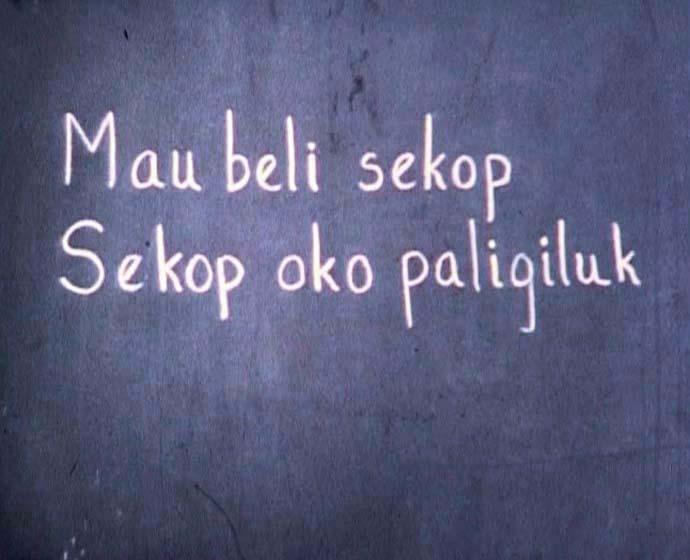 Mau beli sekop
Sekop oko paligiluk